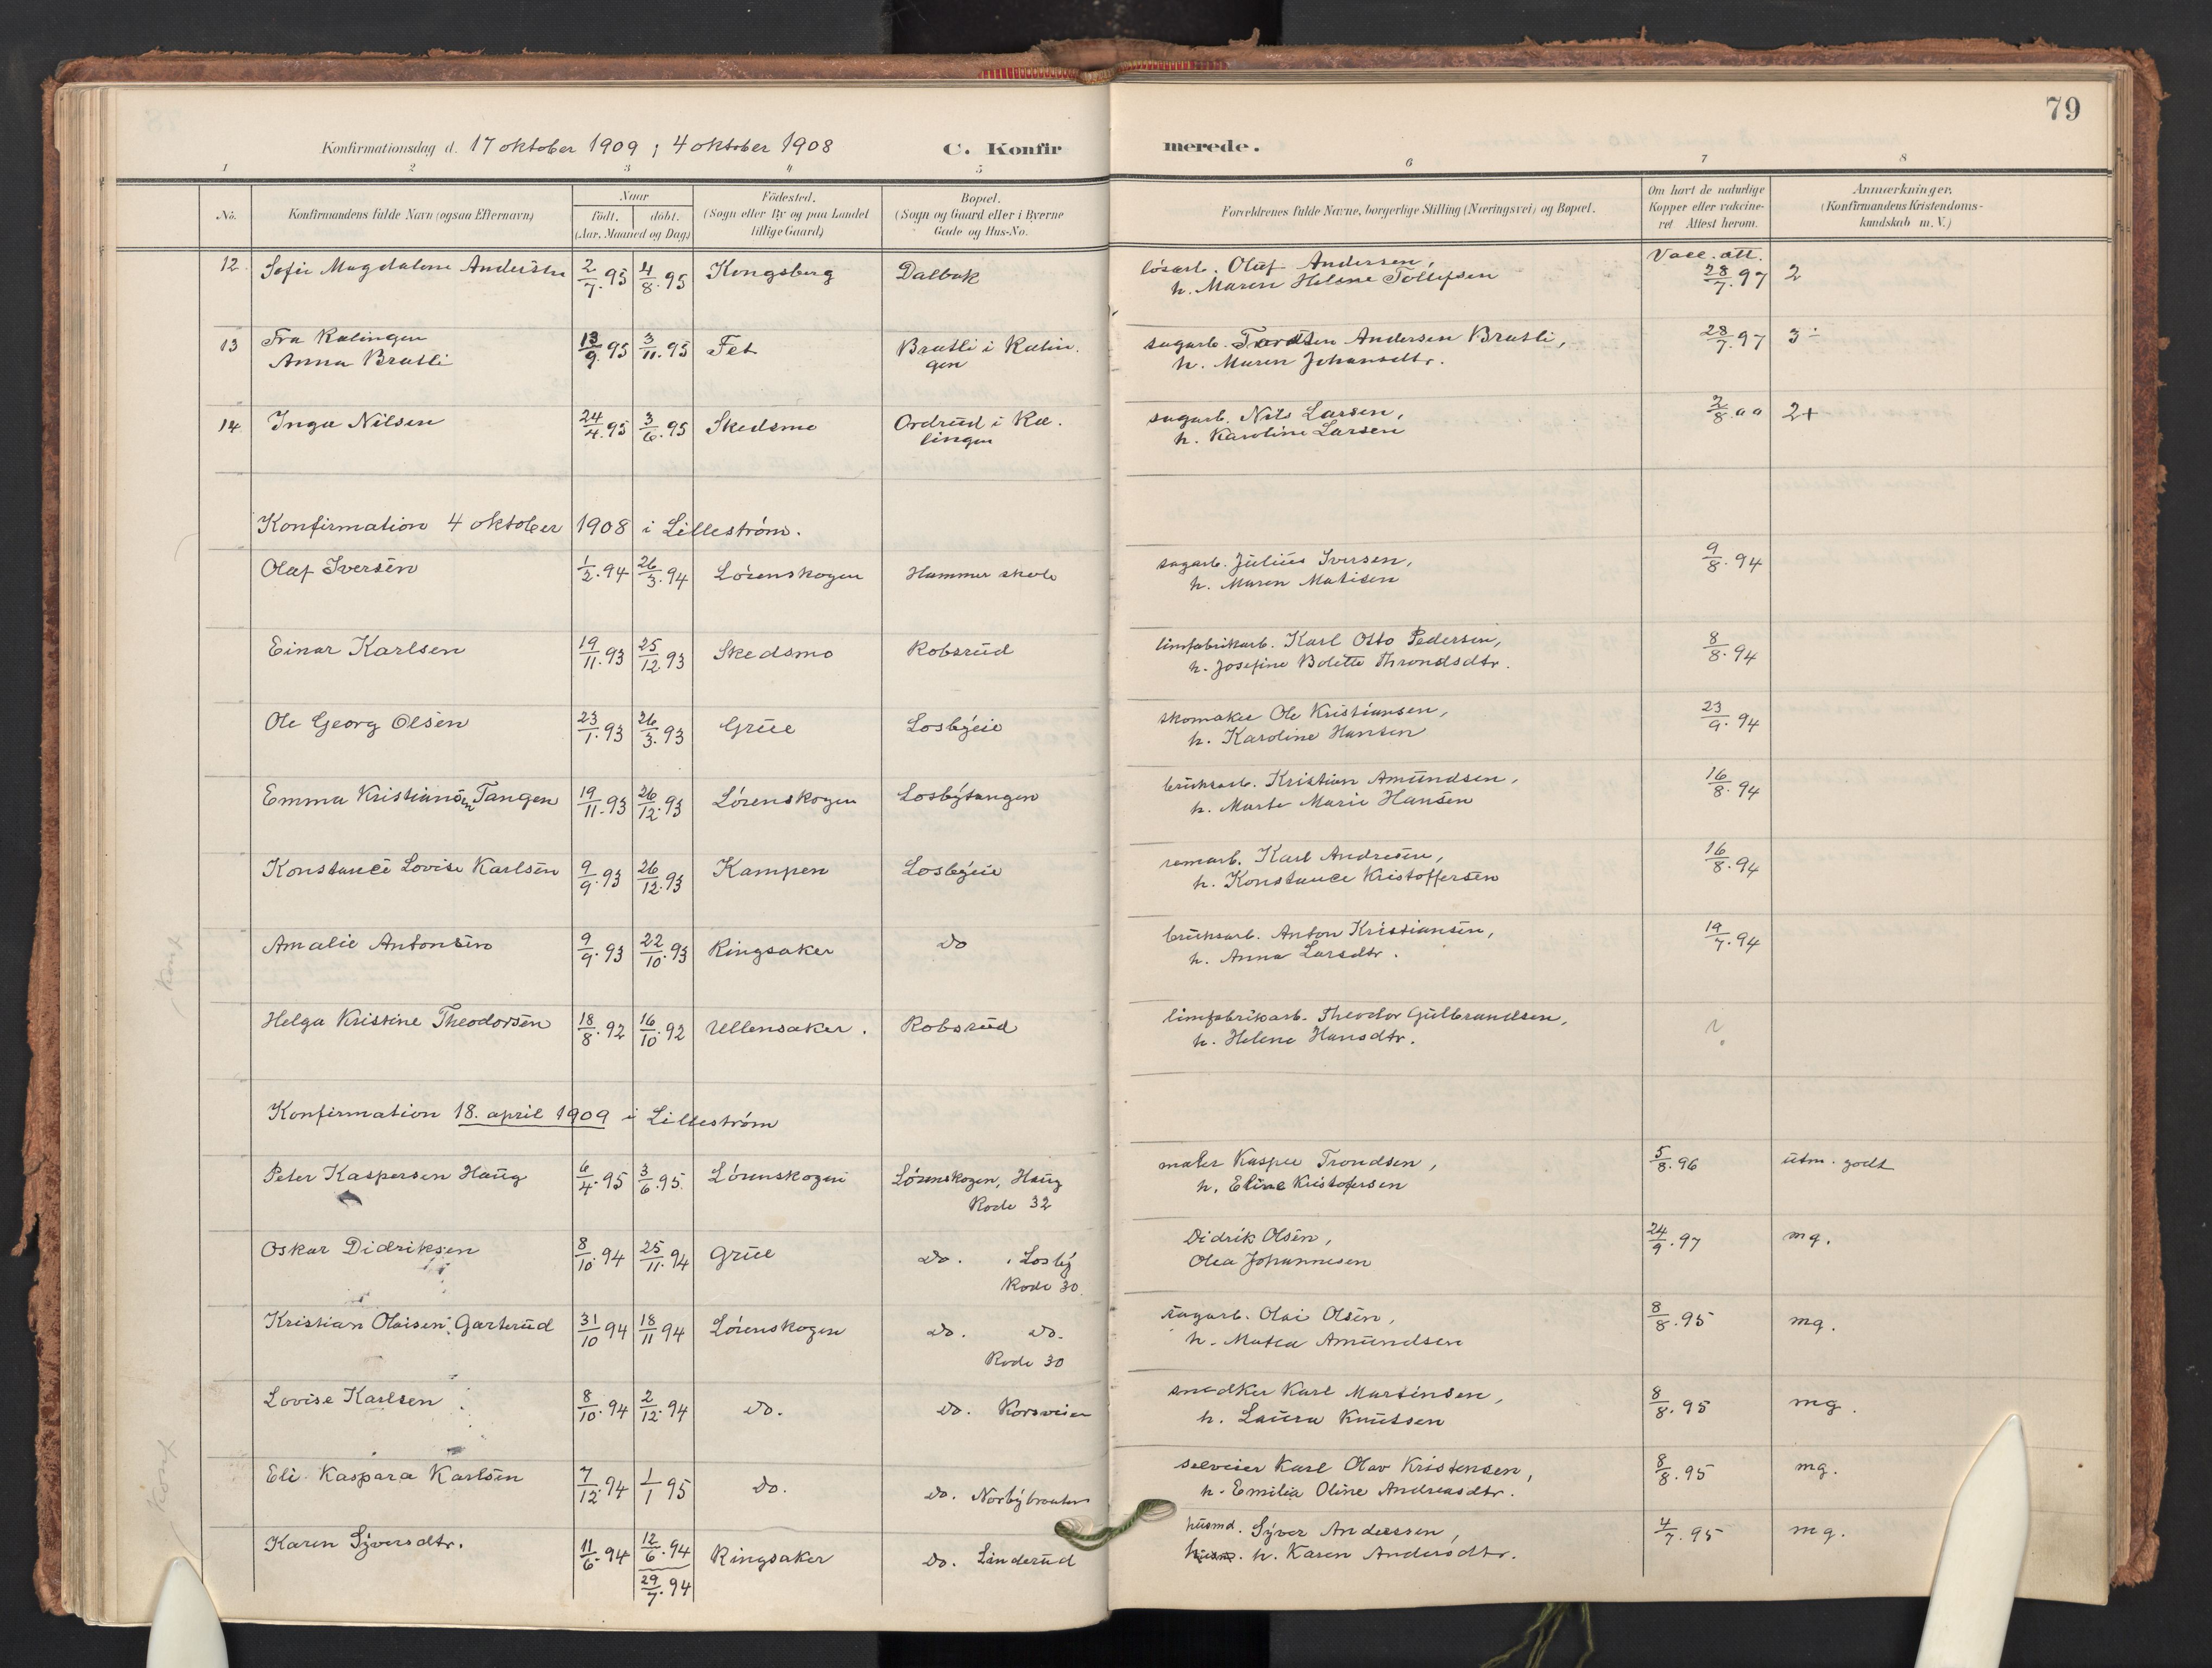 79
Konfirmationsdag d. 17 oktober 1909 ; 4 oktober 1908 C. Konfir merede.
1 2 3 4 5 6 7 8
No. Konfirmandens fulde Navn (ogsaa Efternavn)
Naar
födt. döbt.
(Aar, Maaned og Dag)
Födested.
(Sogn eller By og paa Landet
tillige Gaard)
Bopæl.
(Sogn og Gaard eller i Byerne
Gade og Hus-No.
Forældrenes fulde Navne, borgerlige Stilling (Næringsvei) og Bopæl.
Om havt de naturlige
Kopper eller vakcine-
ret Attest herom.
Anmærkninger.
(Konfirmandens Kristendoms-
kundskab m. V.)
Vacc. att.
12 Sofie Magdalene Andersen 2/7.95 4/8.95 Kongsberg Dalbak løsarb. Olaf Andersen, 28/7.97 2
h. Maren Helene Tollefsen
13 Fra Rælingen 13/9.95 3/11.95 Fet Bratli i Rælin. sagarb. Andersen Bratli, 28/7.97 3÷
Anna Bratli gen h. Maren Johansdtr.
14 Inga Nilsen 24/4.95 3/6.95 Skedsmo Ordrud i Ræ. sagarb. Nils Larsen, 2/8.00 2+
lingen h. Karoline Larsen
Konfirmation 4 oktober 1908 i Lilleström.
Olaf Iversen 1/2.94 26/3.94 Lörenskogen Hammer skole sagarb. Julius Iversen, 9/8.94
h. Maren Matisen
Einar Karlsen 19/11.93 25/12.93 Skedsmo Robsrud limfabrikarb. Karl Otto Pedersen, 8/8.94
h. Josefine Bolette Throndsdtr.
Ole Georg Olsen 23/1.93 26/3.93 Grue Losbyeie skomaker Ole Kristiansen, 23/9.94
h. Karoline Hansen
Emma Kristiansen Tangen 19/11.93 26/12.93 Lörenskogen Losbytangen bruksarb. Kristian Amundsen, 16/8.94
h. Marte Marie Hansen
Konstance Lovise Karlsen 9/9.93 26/12.93 Kampen Losbyeie Karl Andresen, 16/8.94
h. Konstance Kristoffersen
Amalie Antonsen 9/9.93 22/10.93 Ringsaker do bruksarb. Anton Kristiansen, 19/7.94
h. Anna Larsdtr.
Helga Kristine Theodorsen 18/8.92 16/10.92 Ullensaker. Robsrud limfabrikarb. Theodor Gulbrandsen, ?
h. Helene Hansdtr.
Konfirmation 18. april 1909 i Lilleström
Peter Kaspersen Haug 6/4.95 3/6.95. Lörenskogen Lörenskogen, Haug maler Kasper Trondsen, 5/8.96 utm. godt
Rode 32 h. Eline Kristofersen
Oskar Didriksen 8/10.94 25/11.94 Grue do. i Losby Didrik Olsen, 24/9.97 mg.
Rode 30. Olea Johannesen
Kristian Olaisen Garterud 31/10 94 18/11 94 Lörenskogen do. do. sagarb. Olai Olsen, 8/8.95 mg.
Rode 30 h. Matea Amundsen
Lovise Karlsen 8/10.94 2/12.94 do. do. Korsveien snedker Karl Martinsen, 8/8.95 mg.
h. Laura Knutsen
Eli Kaspara Karlsen 7/12.94 1/1 95 do. do. Norbybraaten selveier Karl Olav Kristensen, 8/8.95 mg.
h. Emilia Oline Andreasdtr.
Karen Syversdtr. 11/6.94 12/6.94 Ringsaker do. Linderud husmd. Syver Anderssen, 4/7.95 mg.
29/7.94 h. Karen Andersdtr.